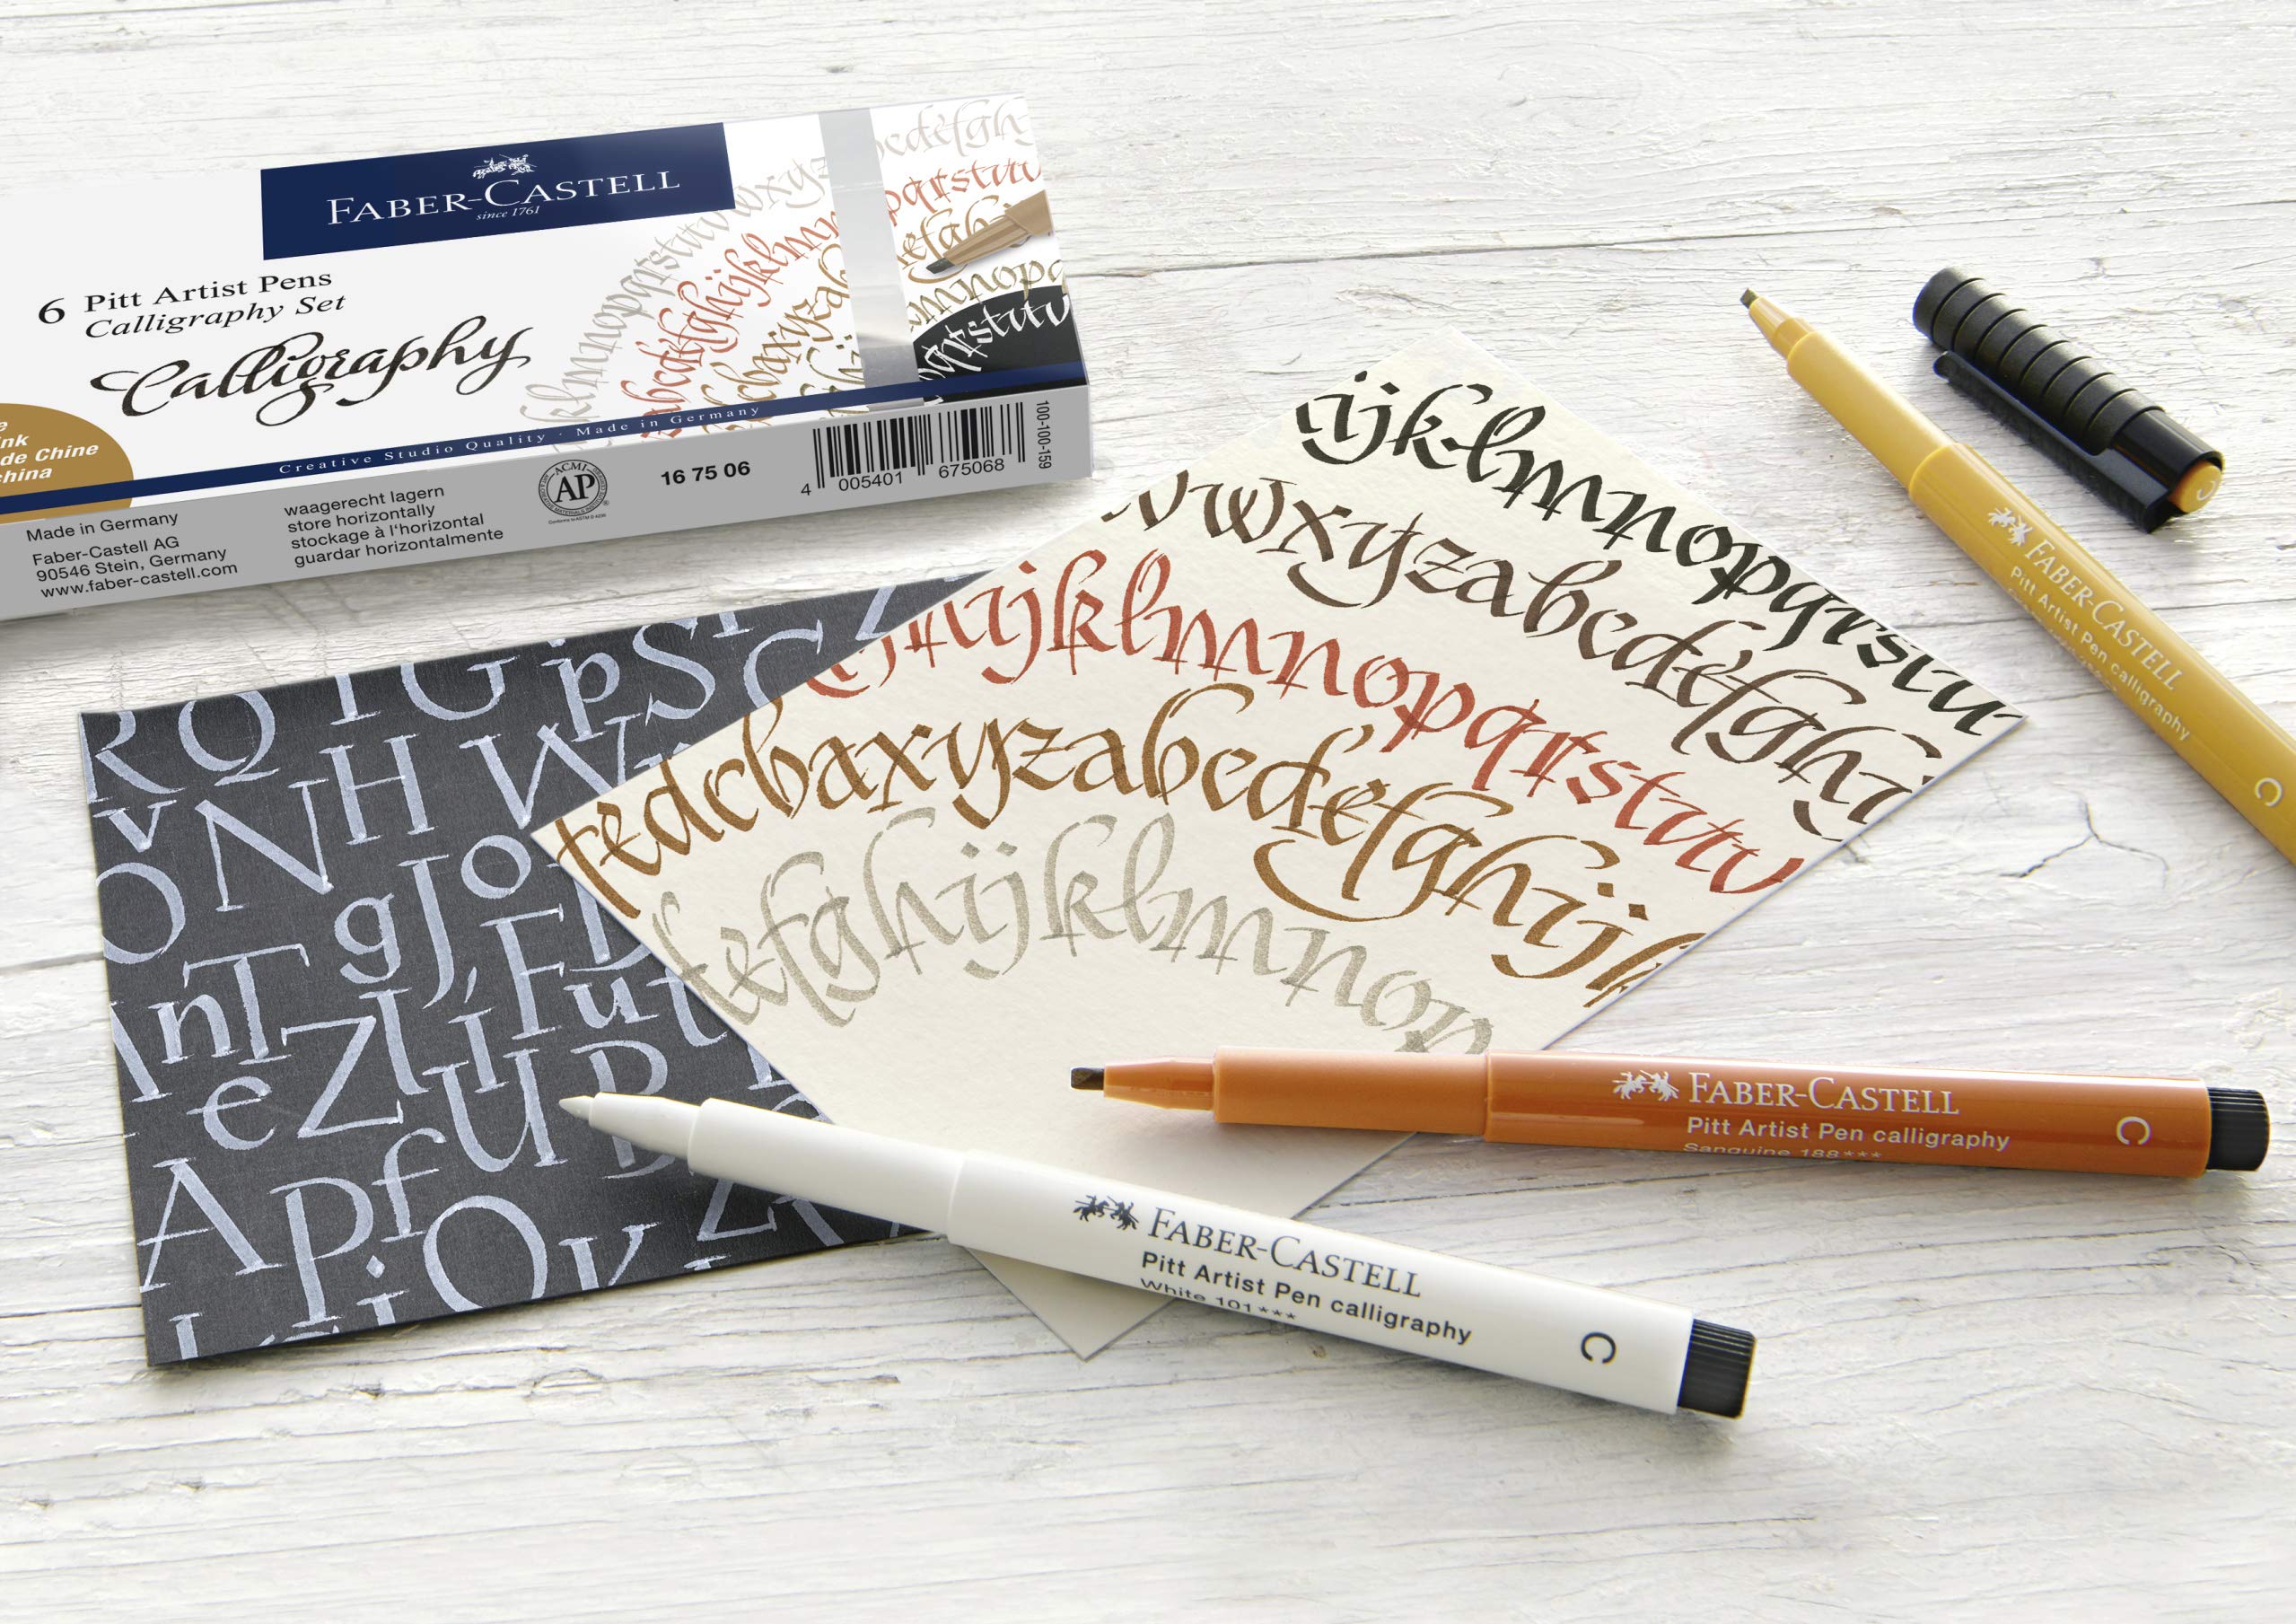 FABER-CASTELL
since 1761
6 Pitt Artist Pens
Calligraphy Set
Calligraphy
de Chine
Creative Studio Quality · Made in Germany
Made in Germany
Faber-Castell AG
90546 Stein, Germany
www.faber-castell.com
waagerecht lagern
store horizontally
stockage à l'horizontal
guardar horizontalmente
ACMI
AP
16 75 06
4 005401 675068
100-100-159
ijklmnopqrstu
vwxyzabcdefghi
hijklmnopqrstuv
fedcbaxyzabcdefghijk
defghijklmnop
R Q T G p S C
V N H W
O g J o
n T F u t
e Z l i U B
A p f
i O v
FABER-CASTELL
Pitt Artist Pen calligraphy
C
FABER-CASTELL
Pitt Artist Pen calligraphy
Sanguine 188***
C
FABER-CASTELL
Pitt Artist Pen calligraphy
White 101***
C